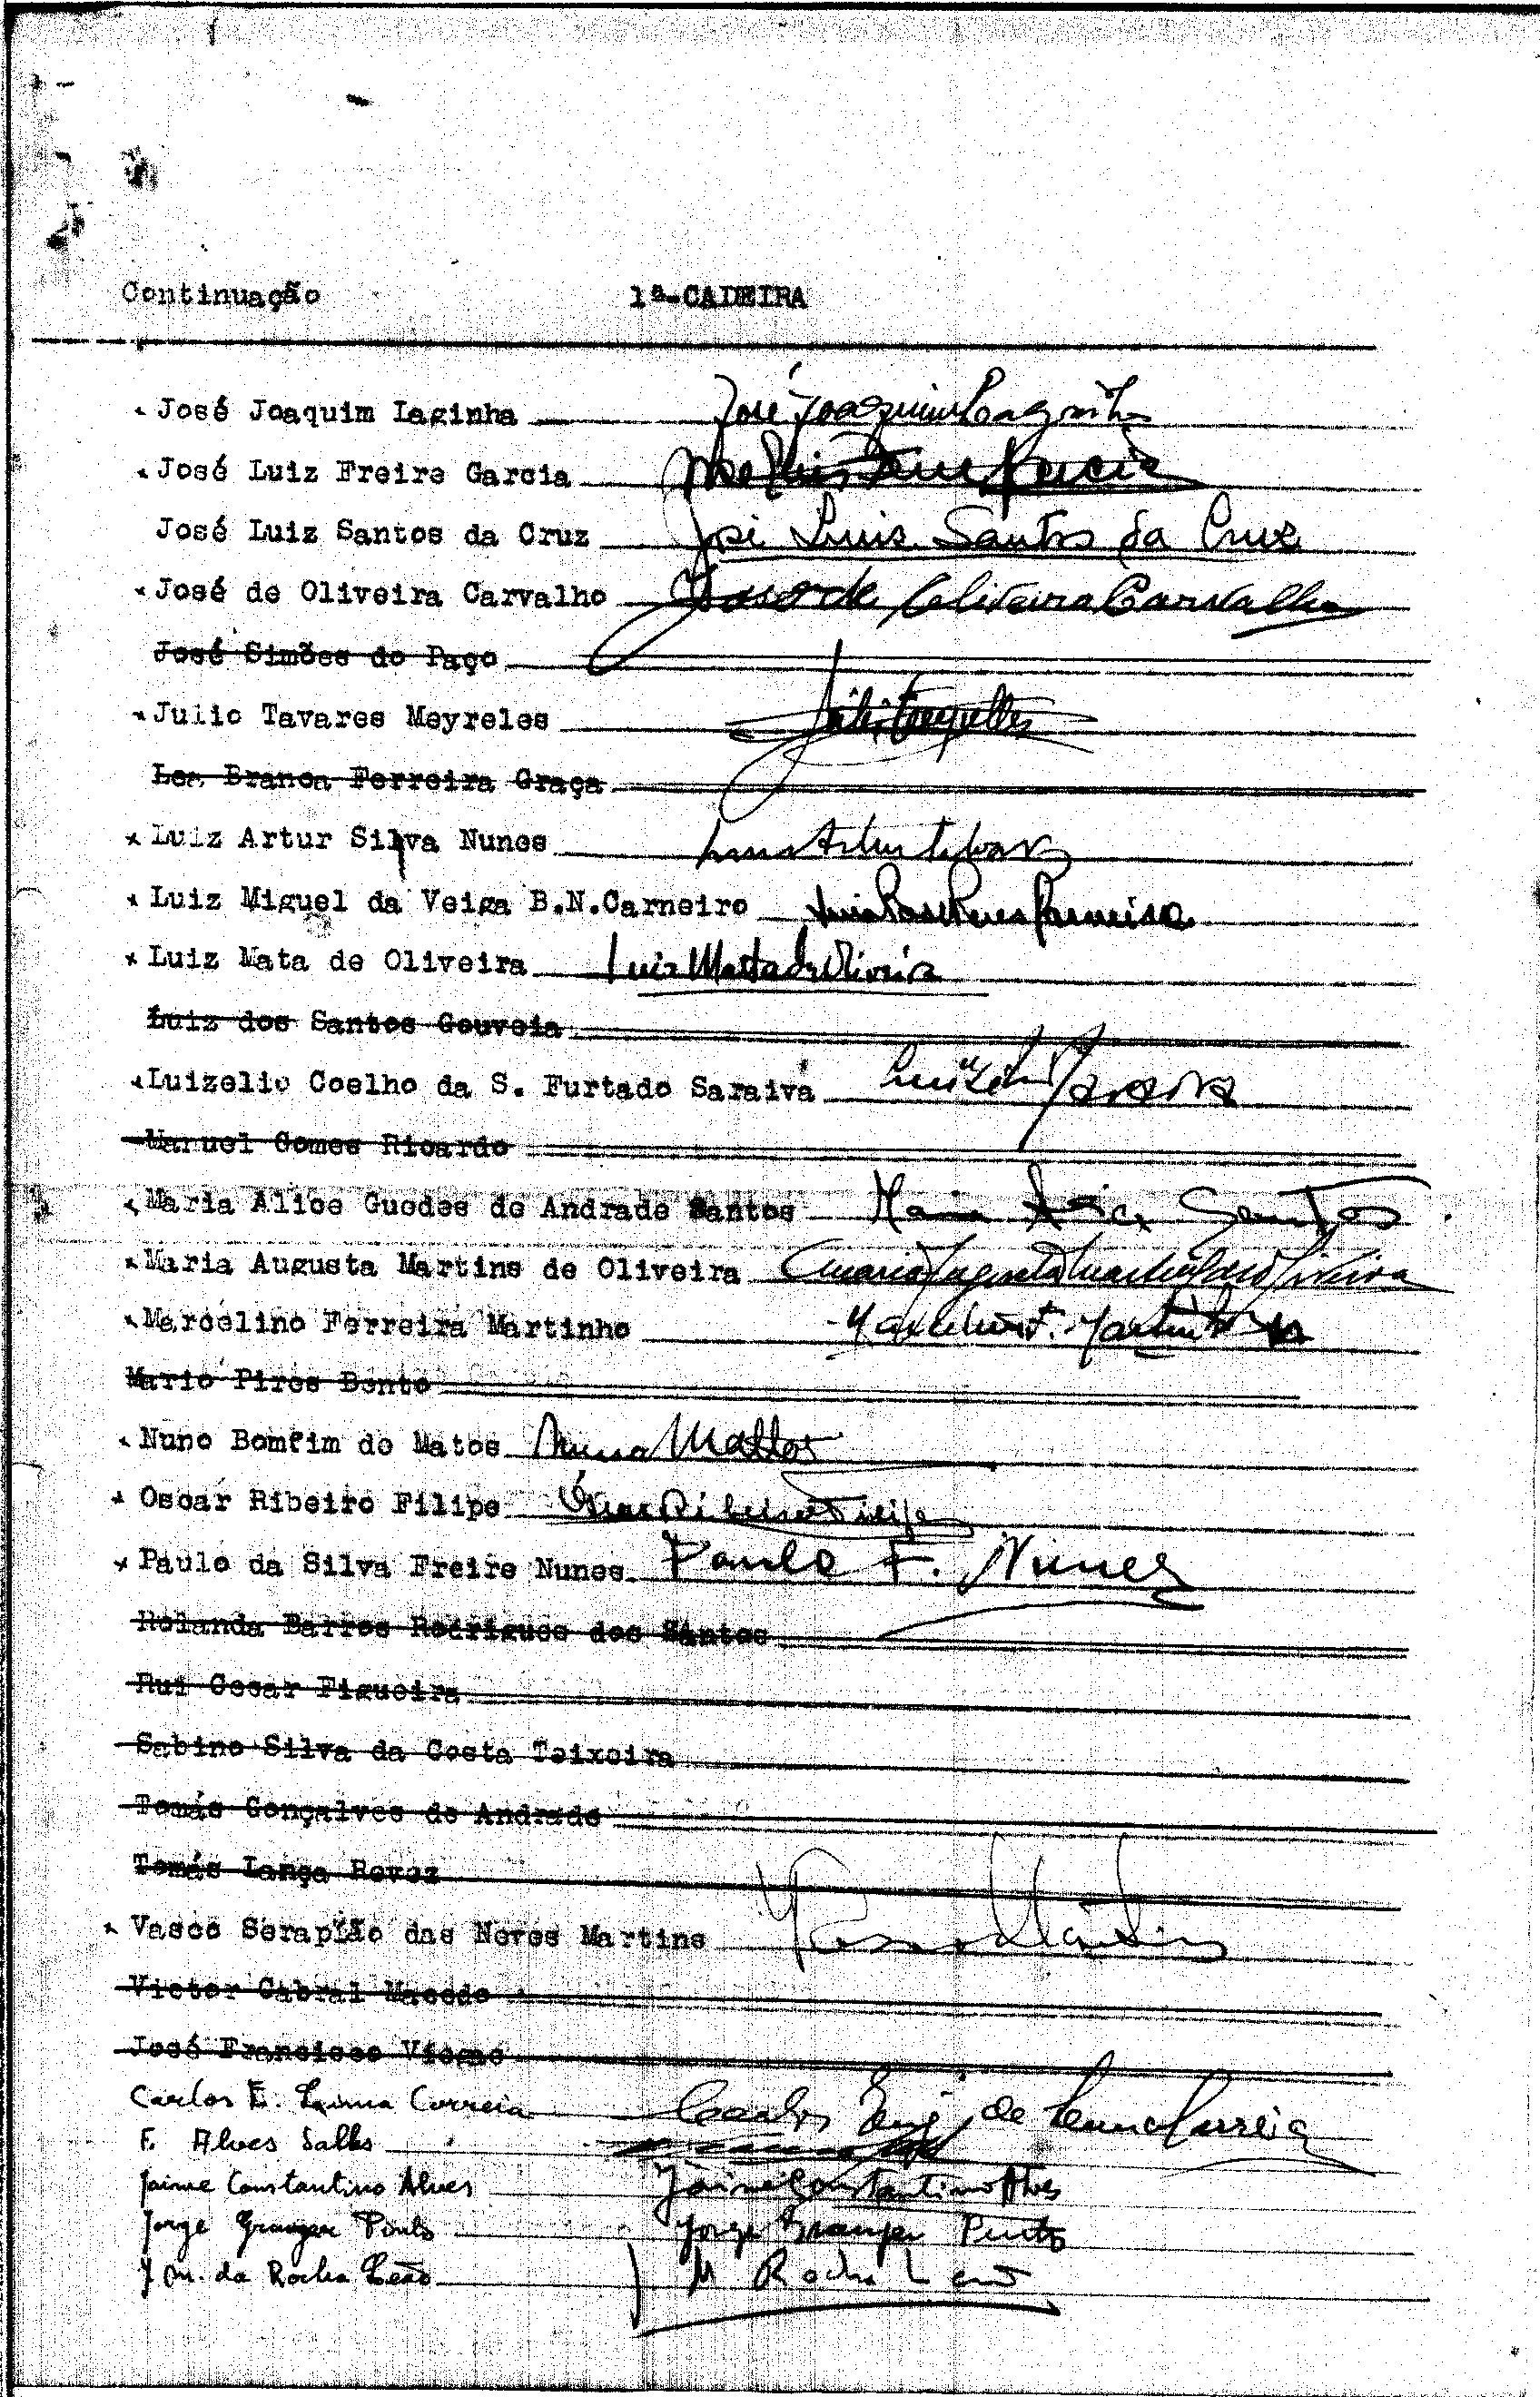 Continuação 1ª-CADEIRA
José Joaquim Laginha José Joaquim Laginha
José Luiz Freire Garcia José Luis Freire Garcia
José Luiz Santos da Cruz José Luis Santos da Cruz
José de Oliveira Carvalho José de Oliveira Carvalho
José Simões do Paço
Julio Tavares Meyreles
Lea Branca Ferreira Graça
Luiz Artur Silva Nunes Luis Artur
Luiz Miguel da Veiga B.N.Carneiro Carneiro
Luiz Mata de Oliveira Luiz Matta de Oliveira
Luiz dos Santos Gouveia
Luizelio Coelho da S. Furtado Saraiva Luizélio Saraiva
Manuel Gomes Ricardo
Maria Alice Guedes de Andrade Santos Maria Alice Santos
Maria Augusta Martins de Oliveira Maria Augusta Martins de Oliveira
Marcelino Ferreira Martinho Marcelino F. Martinho
Mario Pires Bento
Nuno Bomfim de Matos Nuno Mattos
Oscar Ribeiro Filipe Óscar Ribeiro Filipe
Paulo da Silva Freire Nunes Paulo F. Nunes
Rolanda Barros Rodrigues dos Santos
Rui Cesar Figueira
Sabino Silva da Costa Teixeira
Tomás Gonçalves de Andrade
Tomás Lança Revez
Vasco Serapião das Neves Martins Vasco Martins
Victor Cabral Macedo
José Francisco Viegas
Carlos E. Lemma Correia Carlos de Correia
F. Alves Salles
Jaime Constantino Alves Jaime Constantino Alves
Jorge Granger Pinto Jorge Granger Pinto
J M. da Rocha Leão J M Rocha Leão